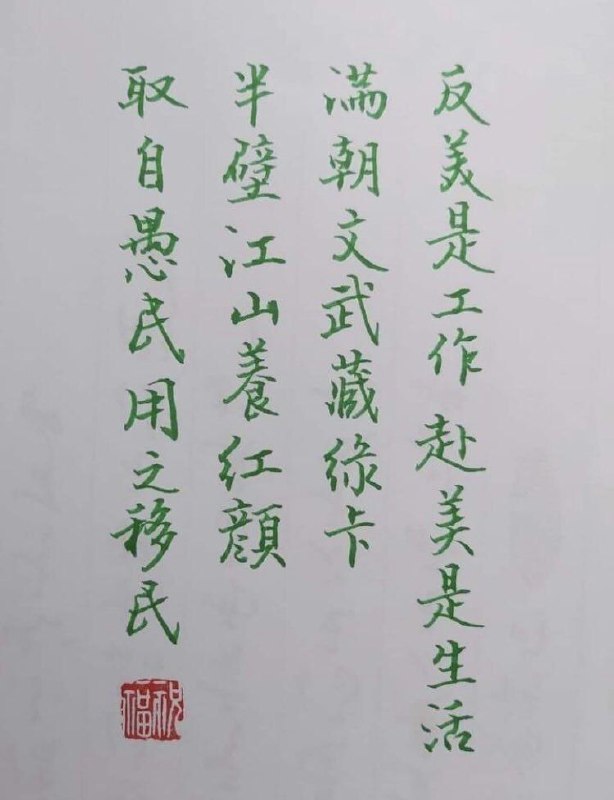 反美是工作 赴美是生活
满朝文武藏綠卡
半壁江山養红顏
取自愚民用之移民
祝福